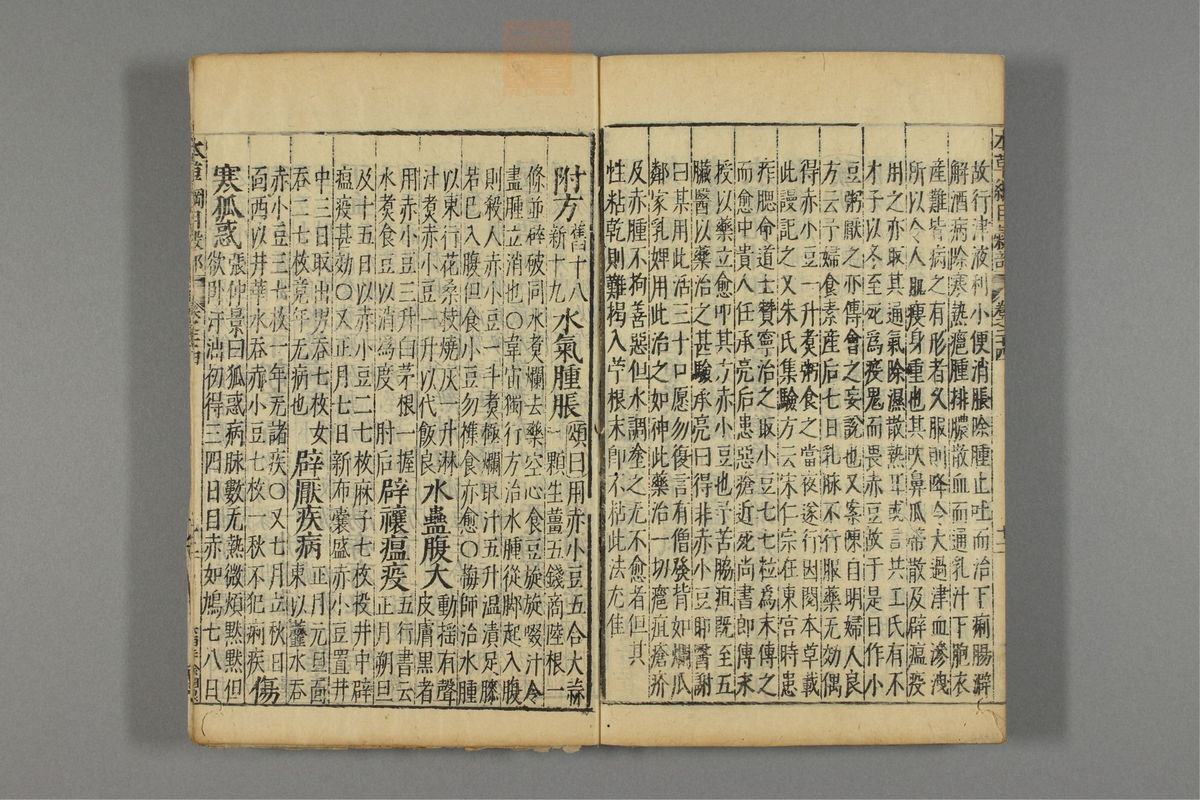 故行津液利小便消脹除腫止吐而治下痢腸澼
解酒病除寒熱癰腫排膿散血而通乳汁下胞衣
産難皆病之有形者久服則降令太過津血滲洩
所以令人肌瘦身重也其吹鼻瓜蒂散及辟瘟疫
用之亦取其通氣除濕散熱耳或言共工氏有不
才子以冬至死為疫鬼而畏赤豆故于是日作小
豆粥厭之亦傅會之妄說也又案陳自明婦人良
方云予婦食素産后七日乳脉不行服藥无効偶
得赤小豆一升煮粥食之當夜遂行因閱本草載
此謾記之又朱氏集驗方云宋仁宗在東宮時患
痄腮命道士贊寧治之取小豆七七粒為末傅之
而愈中貴人任承亮后患惡瘡近死尚書郎傅求
授以藥立愈叩其方赤小豆也予苦脇疽既至五
臟醫以藥治之甚驗承亮曰得非赤小豆耶醫謝
曰某用此活三十口愿勿復言有僧發背如爛瓜
鄰家乳婢用此治之如神此藥治一切癰疽瘡疥
及赤腫不拘善惡但水調塗之无不愈者但其
性粘乾則難揭入苧根末卽不粘此法尤佳
附方舊十八新十九水氣腫脹頌曰用赤小豆五合大蒜一顆生薑五錢商陸根一
條並碎破同水煮爛去藥空心食豆旋旋啜汁令
盡腫立消也〇韋宙獨行方治水腫從脚起入腹
則殺人赤小豆一斗煮極爛取汁五升温漬足膝
若已入腹但食小豆勿襍食亦愈〇梅師治水腫
以東行花桑枝燒灰一升淋
汁煮赤小豆一升以代飯良水蠱腹大動揺有聲皮膚黑者
用赤小豆三升白茅根一握
水煮食豆以消為度肘后辟禳瘟疫五行書云正月朔旦
及十五日以赤小豆二七枚麻子七枚投井中辟
瘟疫甚効〇又正月七日新布囊盛赤小豆置井
中三日取出男吞七枚女
吞二七枚竟年无病也辟厭疾病正月元旦面東以虀水吞
赤小豆三七枚一年无諸疾〇又七月立秋日
面西以井華水吞赤小豆七枚一秋不犯痢疾傷
寒狐惑張仲景曰狐惑病脉數无熱微煩黙黙但欲臥汗出初得三四日目赤如鳩七八日